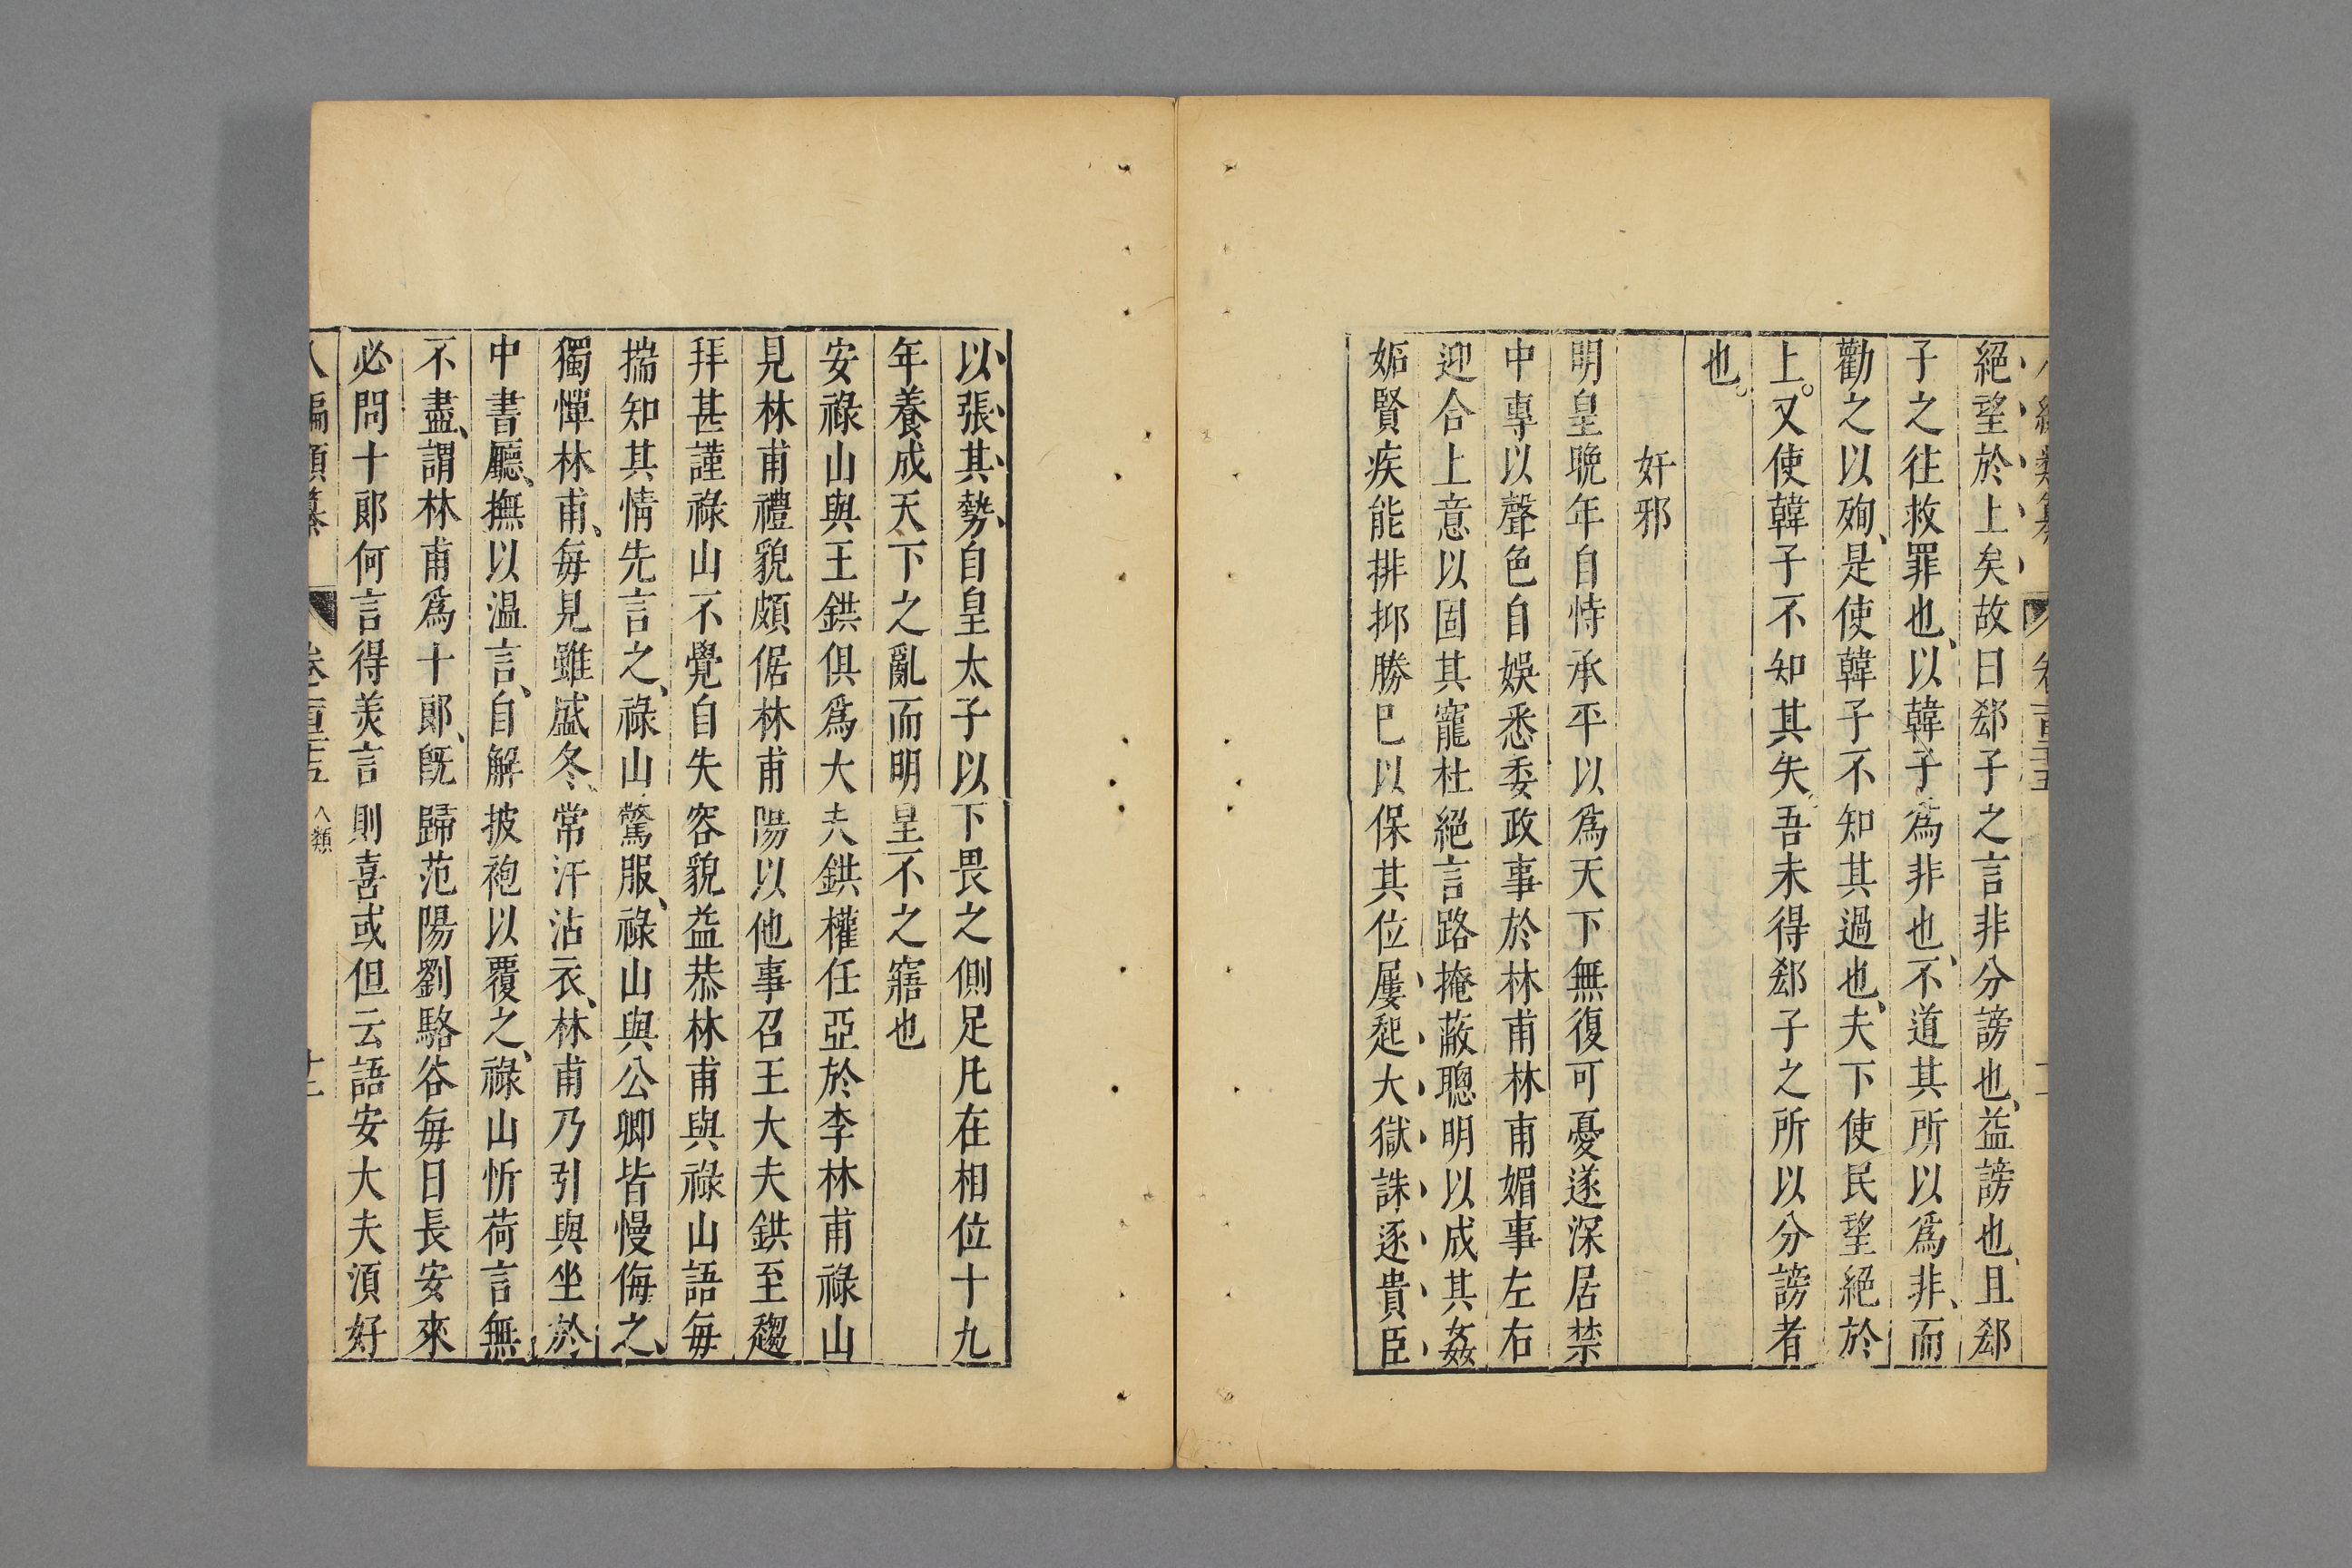 絕望於上矣故曰郄子之言非分謗也益謗也且郄
子之往救罪也以韓子爲非也不道其所以爲非而
勸之以殉是使韓子不知其過也夫下使民望絕於
上又使韓子不知其失吾未得郄子之所以分謗者
也
奸邪
明皇晚年自恃承平以爲天下無復可憂遂深居禁
中專以聲色自娛悉委政事於林甫林甫媚事左右
迎合上意以固其寵杜絕言路掩蔽聰明以成其姦
妬賢疾能排抑勝已以保其位屢起大獄誅逐貴臣
以張其勢自皇太子以下畏之側足凡在相位十九
年養成天下之亂而明皇不之寤也
安祿山與王鉷俱爲大夫鉷權任亞於李林甫祿山
見林甫禮貌頗倨林甫陽以他事召王大夫鉷至趨
拜甚謹祿山不覺自失容貌益恭林甫與祿山語每
揣知其情先言之祿山驚服祿山與公卿皆慢侮之
獨憚林甫每見雖盛冬常汗沾衣林甫乃引與坐於
中書廳撫以溫言自解披袍以覆之祿山忻荷言無
不盡謂林甫爲十郎旣歸范陽劉駱谷每日長安來
必問十郎何言得羙言則喜或但云語安大夫須好
八編類纂 卷二百十五 人類 十二